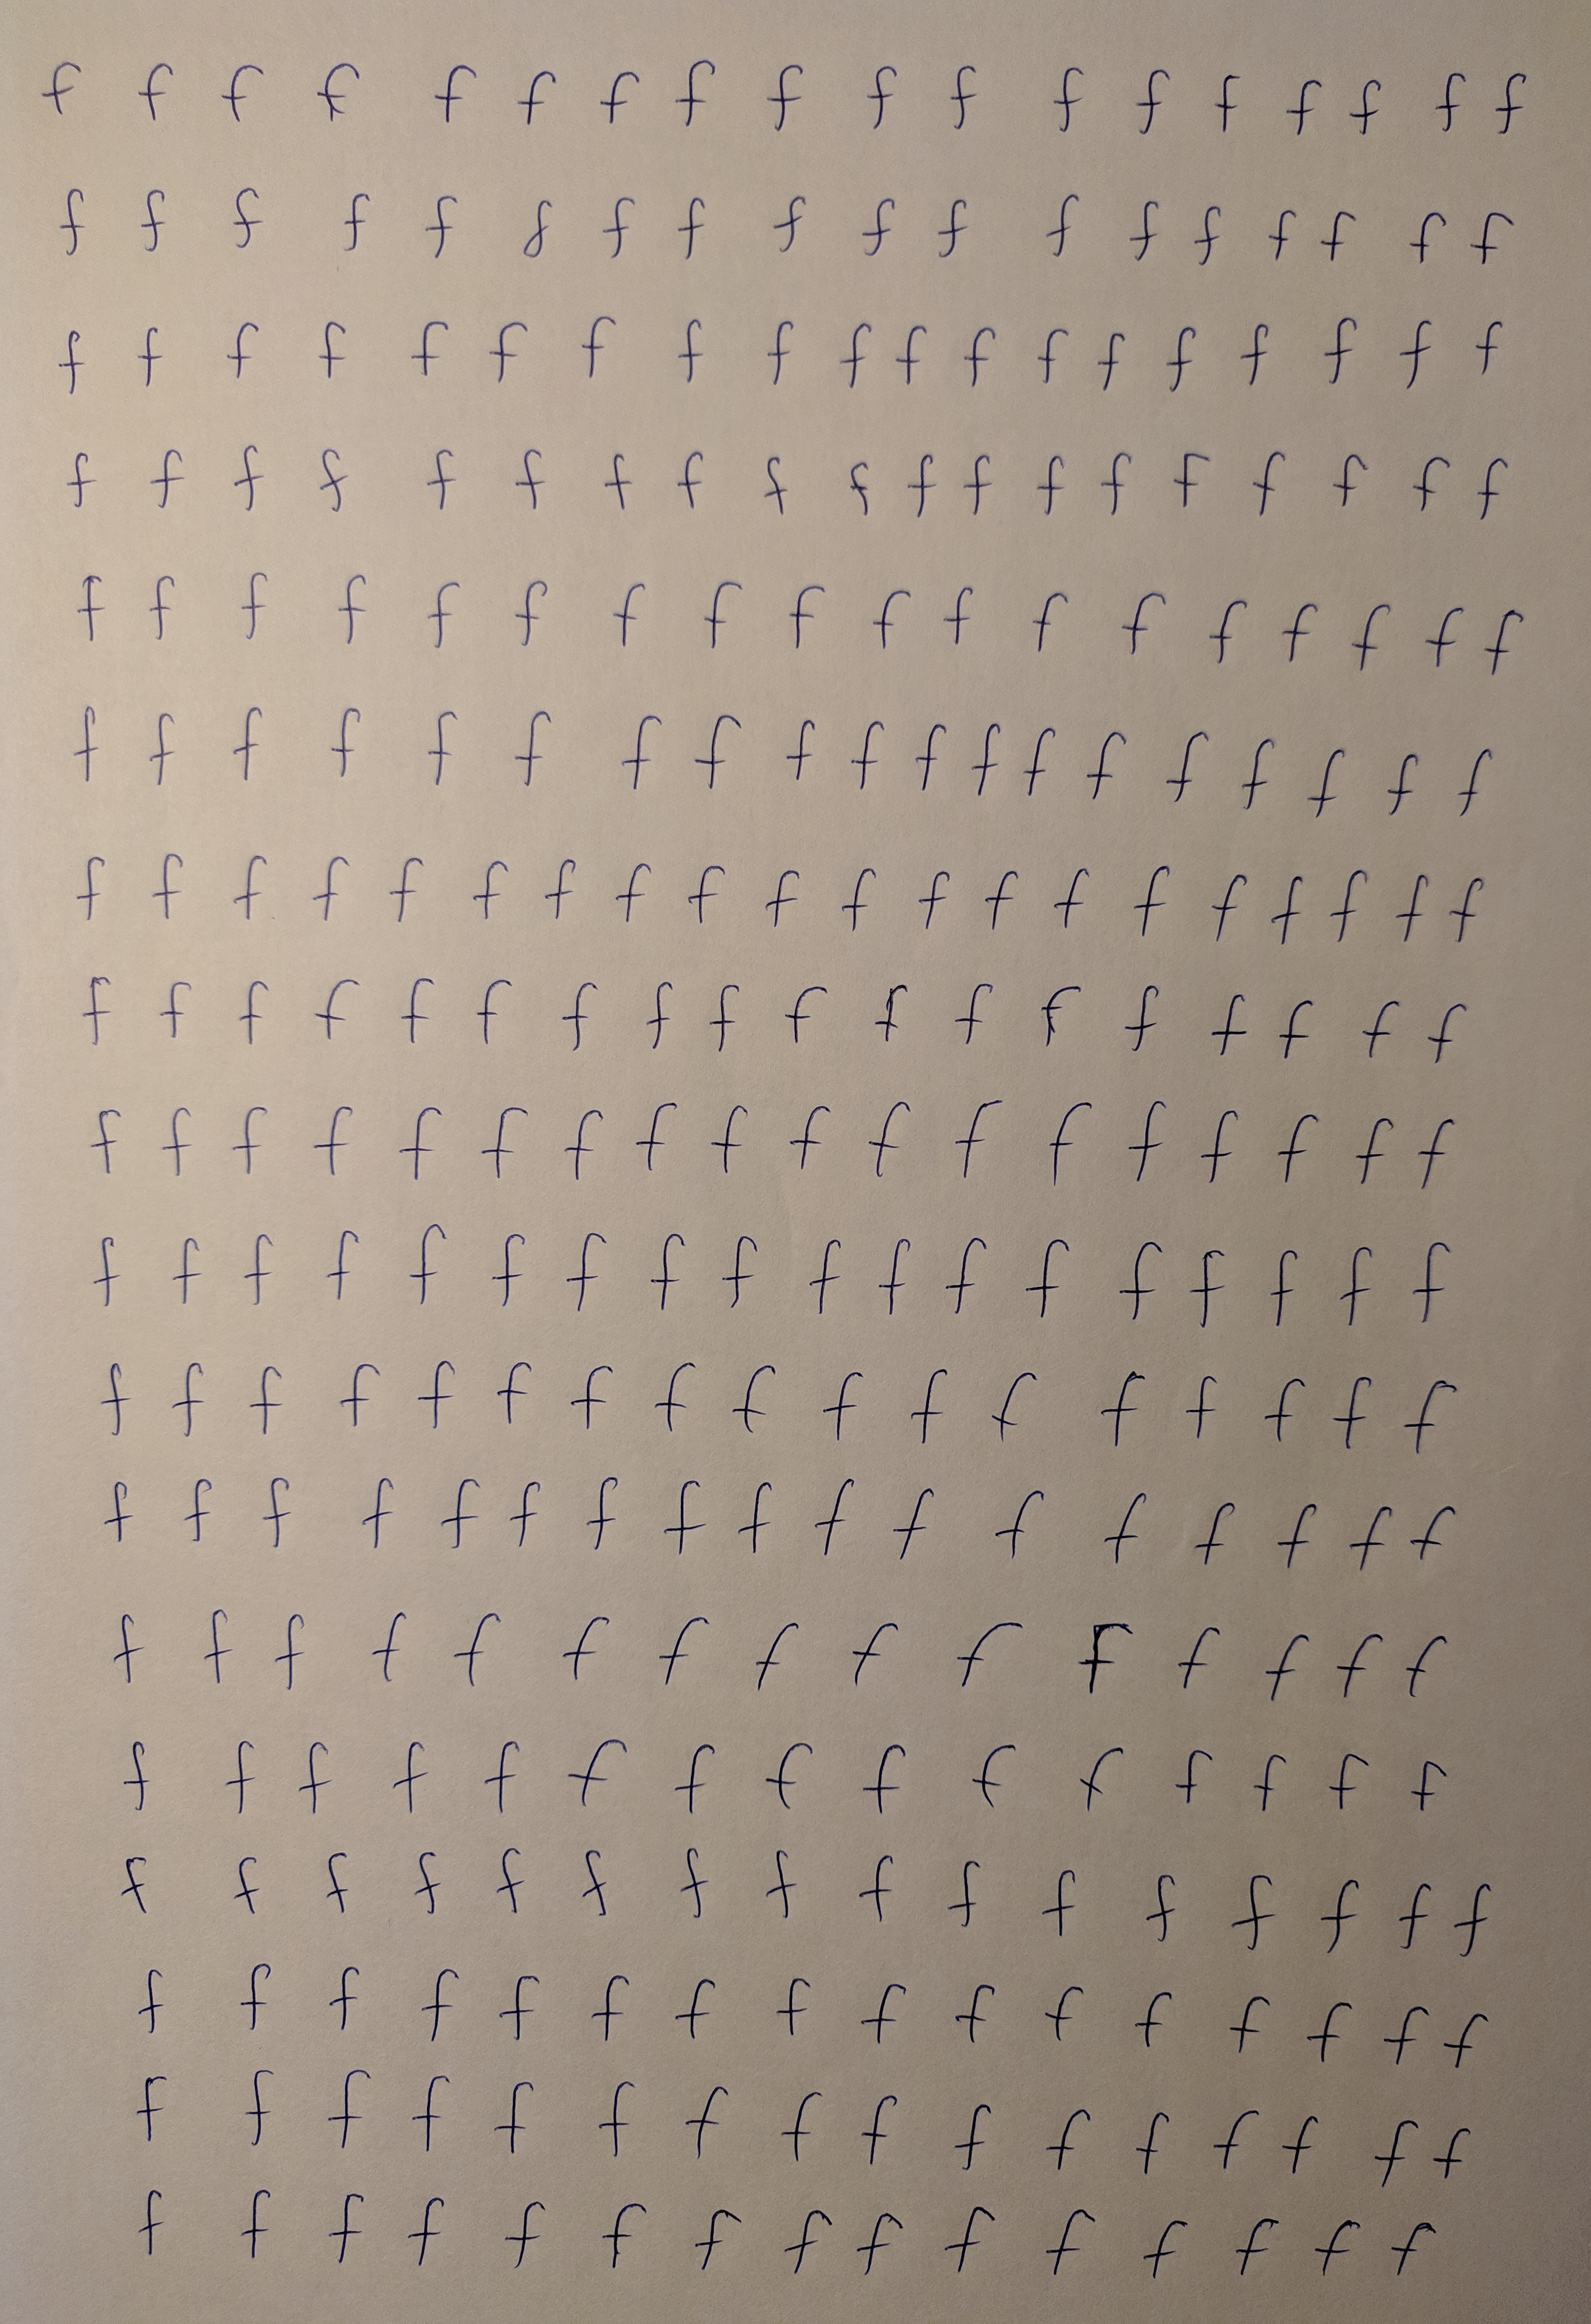 f f f f f f f f f f f f f f f f f f
f f f f f f f f f f f f f f f f f f
f f f f f f f f f f f f f f f f f f f
f f f f f f f f f f f f f f f f f f f
f f f f f f f f f f f f f f f f f f
f f f f f f f f f f f f f f f f f f f
f f f f f f f f f f f f f f f f f f f f
f f f f f f f f f f f f f f f f f f
f f f f f f f f f f f f f f f f f f
f f f f f f f f f f f f f f f f f f
f f f f f f f f f f f f f f f f f
f f f f f f f f f f f f f f f f f
f f f f f f f f f f f f f f f
f f f f f f f f f f f f f f f
f f f f f f f f f f f f f f f f
f f f f f f f f f f f f f f f f
f f f f f f f f f f f f f f f f
f f f f f f f f f f f f f f f